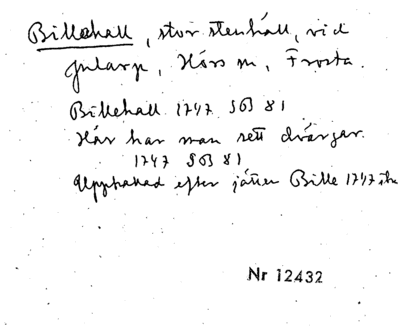 Billehall, stor stenhäll, vid
Gularp, Hörs sn, Frosta.
Billehall 1747 SGB 81
Här har man sett dvärgar.
1747 SGB 81
Uppkallad efter jätten Bille 1747 ib.
Nr 12432